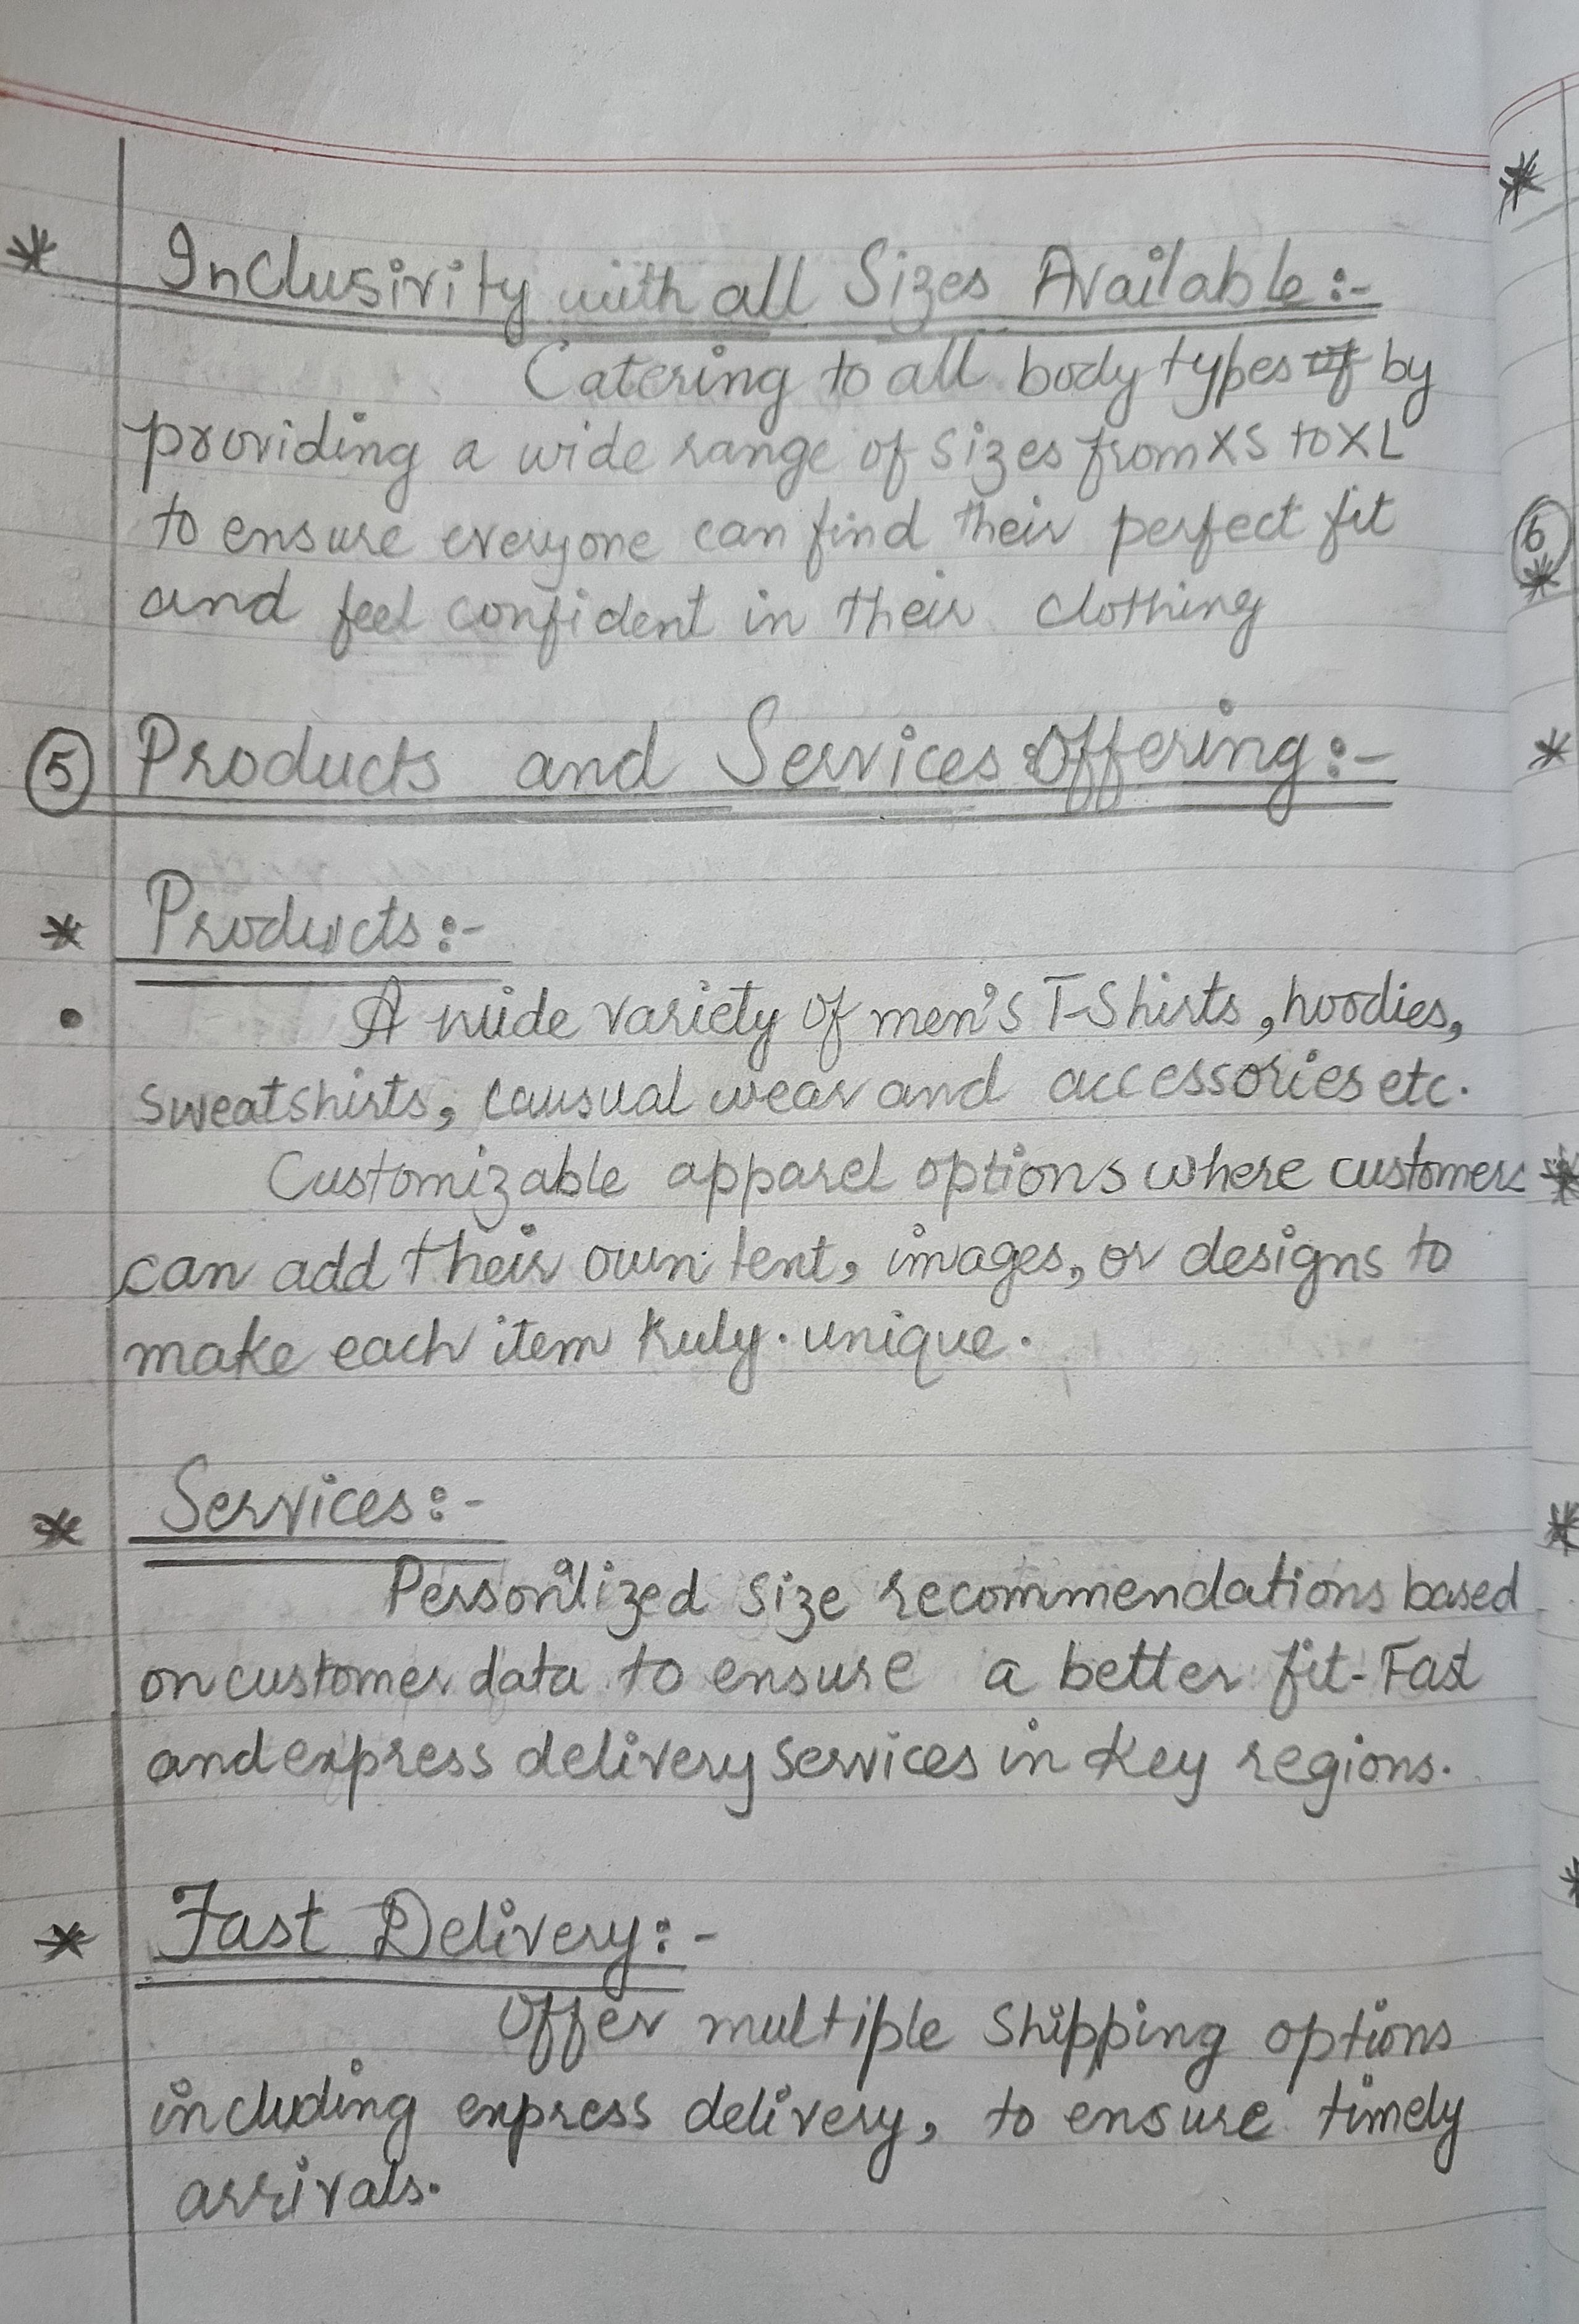 * Inclusivity with all Sizes Available:-
Catering to all body types of by
providing a wide range of sizes from XS to XL
to ensure everyone can find their perfect fit
and feel confident in their clothing
5 Products and Services Offering:-
* Products:-
• A wide variety of men's T-Shirts, hoodies,
sweatshirts, causual wear and accessories etc.
Customizable apparel options where customers
can add their own tent, images, or designs to
make each item truly. unique.
* Services:-
Personlized size recommendations based
on customer data to ensure a better fit - Fast
and express delivery services in key regions.
* Fast Delivery:-
Offer multiple Shipping options
including express delivery, to ensure timely
arrivals.
*
6
*
*
*
*
*